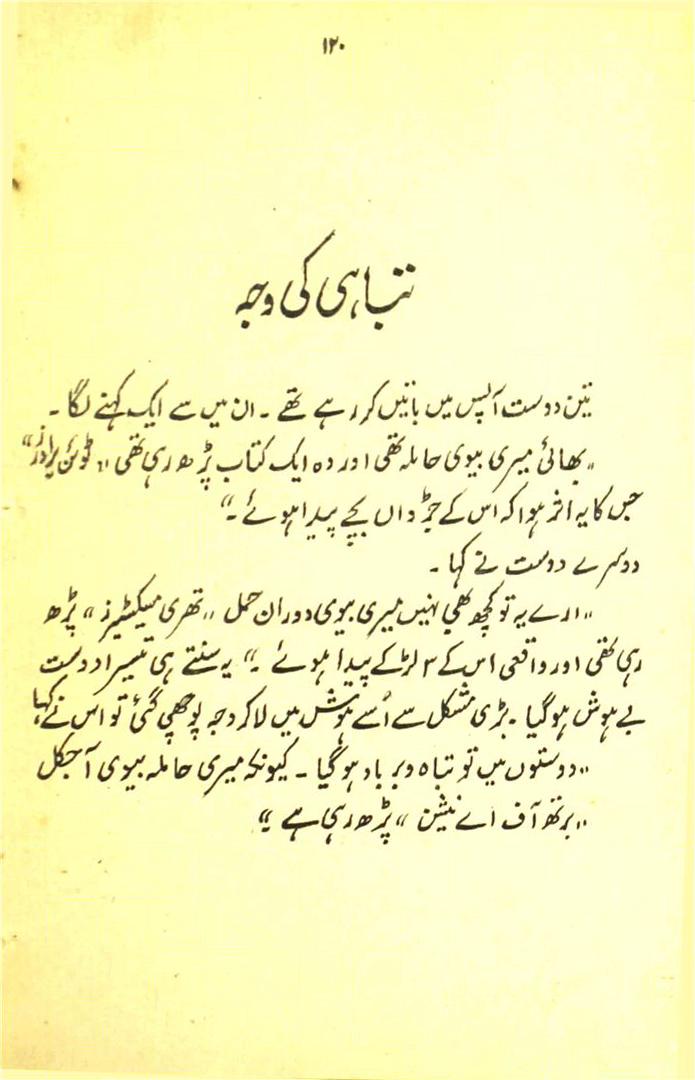 ۱۲۰
تباہی کی وجہ
تین دوست آپس میں باتیں کر رہے تھے ۔ ان میں سے ایک کہنے لگا ۔
"بھائی میری بیوی حاملہ تھی اور وہ ایک کتاب پڑھ رہی تھی "ٹوئن برادرز"
جس کا یہ اثر ہوا کہ اس کے جڑواں بچے پیدا ہوئے ۔"
دوسرے دوست نے کہا ۔
"ارے یہ تو کچھ بھی نہیں میری بیوی دوران حمل "تھری مسکیٹیرز" پڑھ
رہی تھی اور واقعی اس کے ۳ لڑکے پیدا ہوئے ۔" یہ سنتے ہی تیسرا دوست
بے ہوش ہو گیا ۔ بڑی مشکل سے اُسے ہوش میں لا کر وجہ پوچھی گئی تو اس نے کہا
"دوستوں میں تو تباہ و برباد ہو گیا ۔ کیونکہ میری حاملہ بیوی آجکل
"برتھ آف اے نیشن" پڑھ رہی ہے ۔"